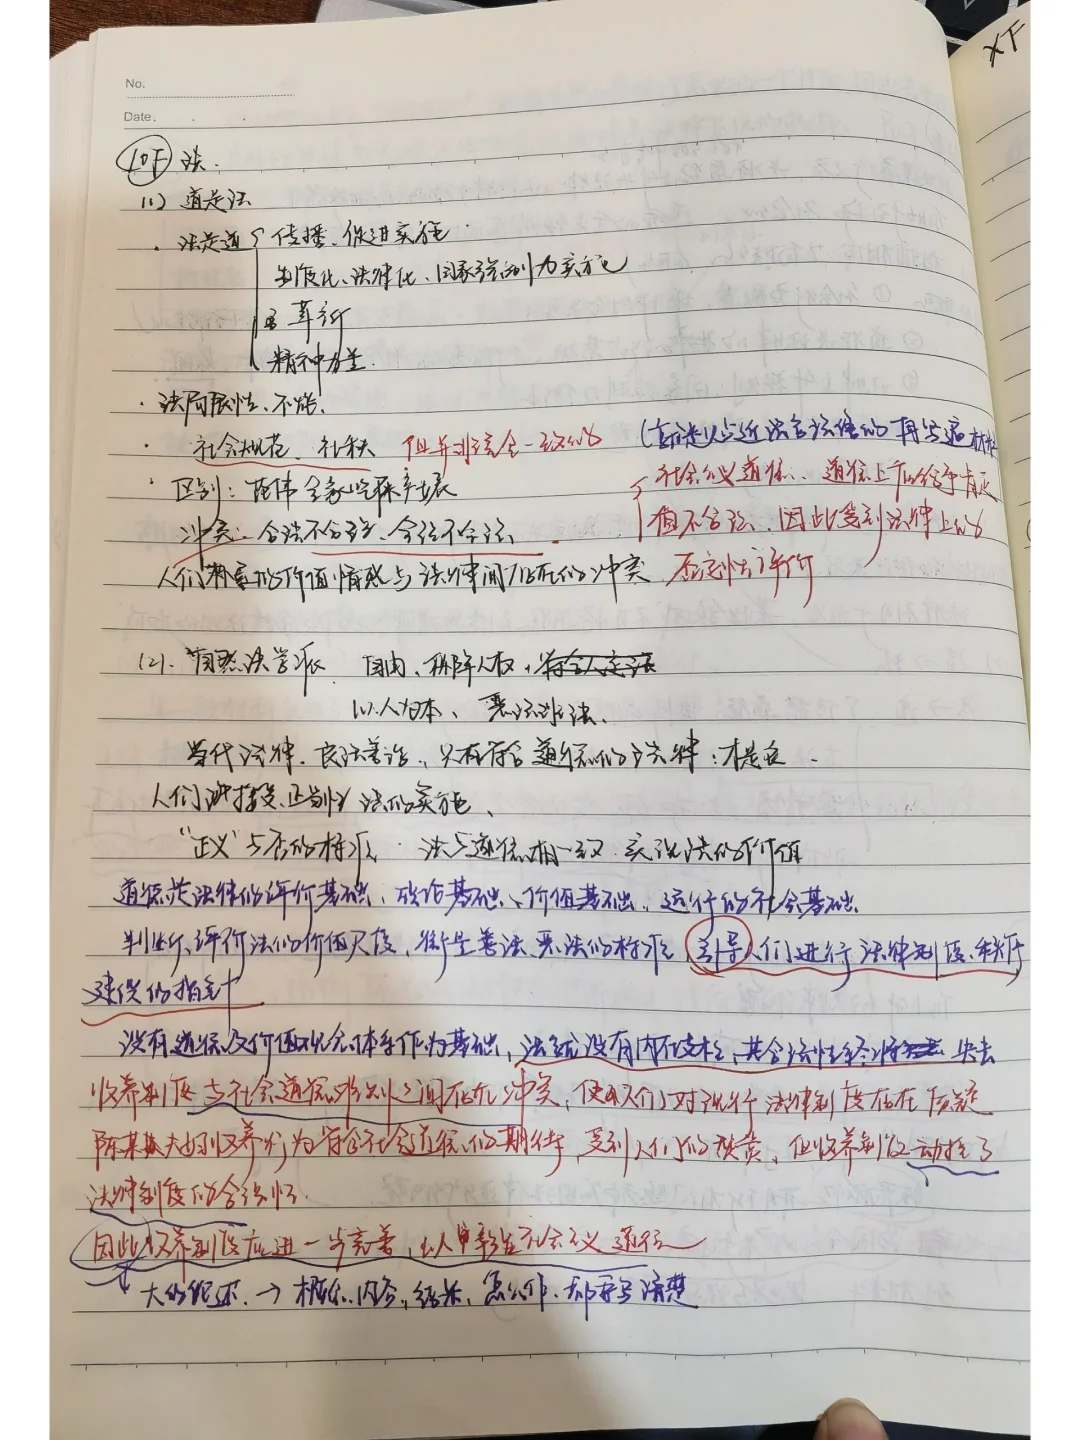 XF
No.
Date.
10F 法.
(1) 道是法
· 法是道 { 传播、促进实施
制度化、法律化、国家强制力实施
革新
精神力量
· 法局限性、不能.
· 社会规范、社秩 但并非完全一致的
再写逼材料
· 区别:
社会公义道德、道德上应给予肯定
冲突: 合法不合
值不合法、因此受到法律上的
人们 的价值情感与法律间存在的冲突 否定性评价
(2). 自然法学派 自由、秩序人权、
以人为本、恶法非法.
当代法律、良法善治、只有符合道德的法律,才是良
人们 法的实施、
"正义"与否的标准 · 法与道德相一致 实现法的价值
道德是法律的评价基础、政治基础、价值基础、运行的社会基础
判断、评价法的价值尺度、衡量善法恶法的标准、引导人们进行法律制度、秩序
建设的指针
没有道德及价值观念体系作为基础,法就没有内在支柱,其合法性终将 失去
收养制度与社会道德准则之间存在冲突,使得人们对现行法律制度存在质疑
陈某 夫妇收养行为符合社会道德的期待,受到人们的赞赏,但收养制度动摇了
法律制度的合法性.
因此收养制度应进一步完善,以 社会主义道德
大的 → 概念、内容、结果、怎么作、都要写清楚